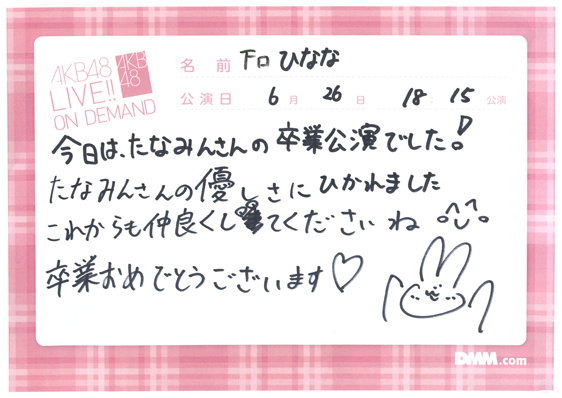 AKB48
LIVE!!
ON DEMAND
AKB
48
名前 下口ひなな
公演日 6月26日 18:15公演
今日は、たなみんさんの卒業公演でした!
たなみんさんの優しさにひかれました
これからも仲良くしてくださいね
卒業おめでとうございます♡
DMM.com